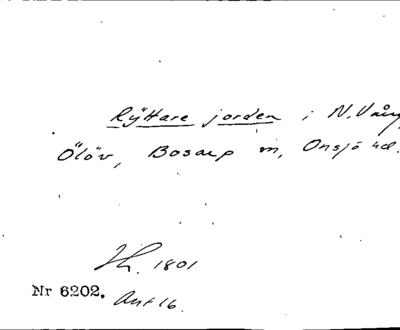 Ryttare jorden i N. Vång,
Ölöv, Bosarp m, Onsjö hd.
1801
Nr 6202. Akt 16.